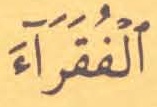 ٱلْفُقَرَآءَ